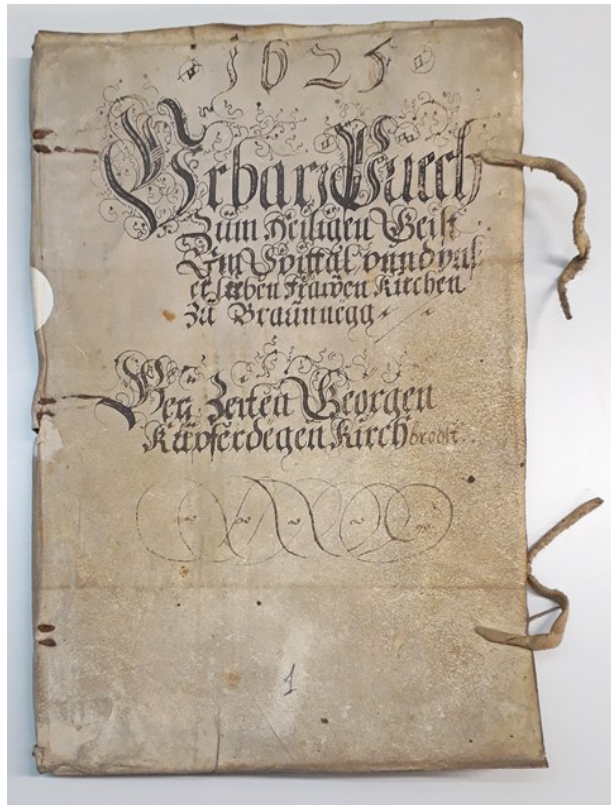 1625
Urbari Puech
Zum Heiligen Geist
Im Spittal vnnd vns
er lieben Frawen Kirchen
zů Braunnegg
Bey Zeiten Georgen
Kupferdegen Kirchbrobst.
1